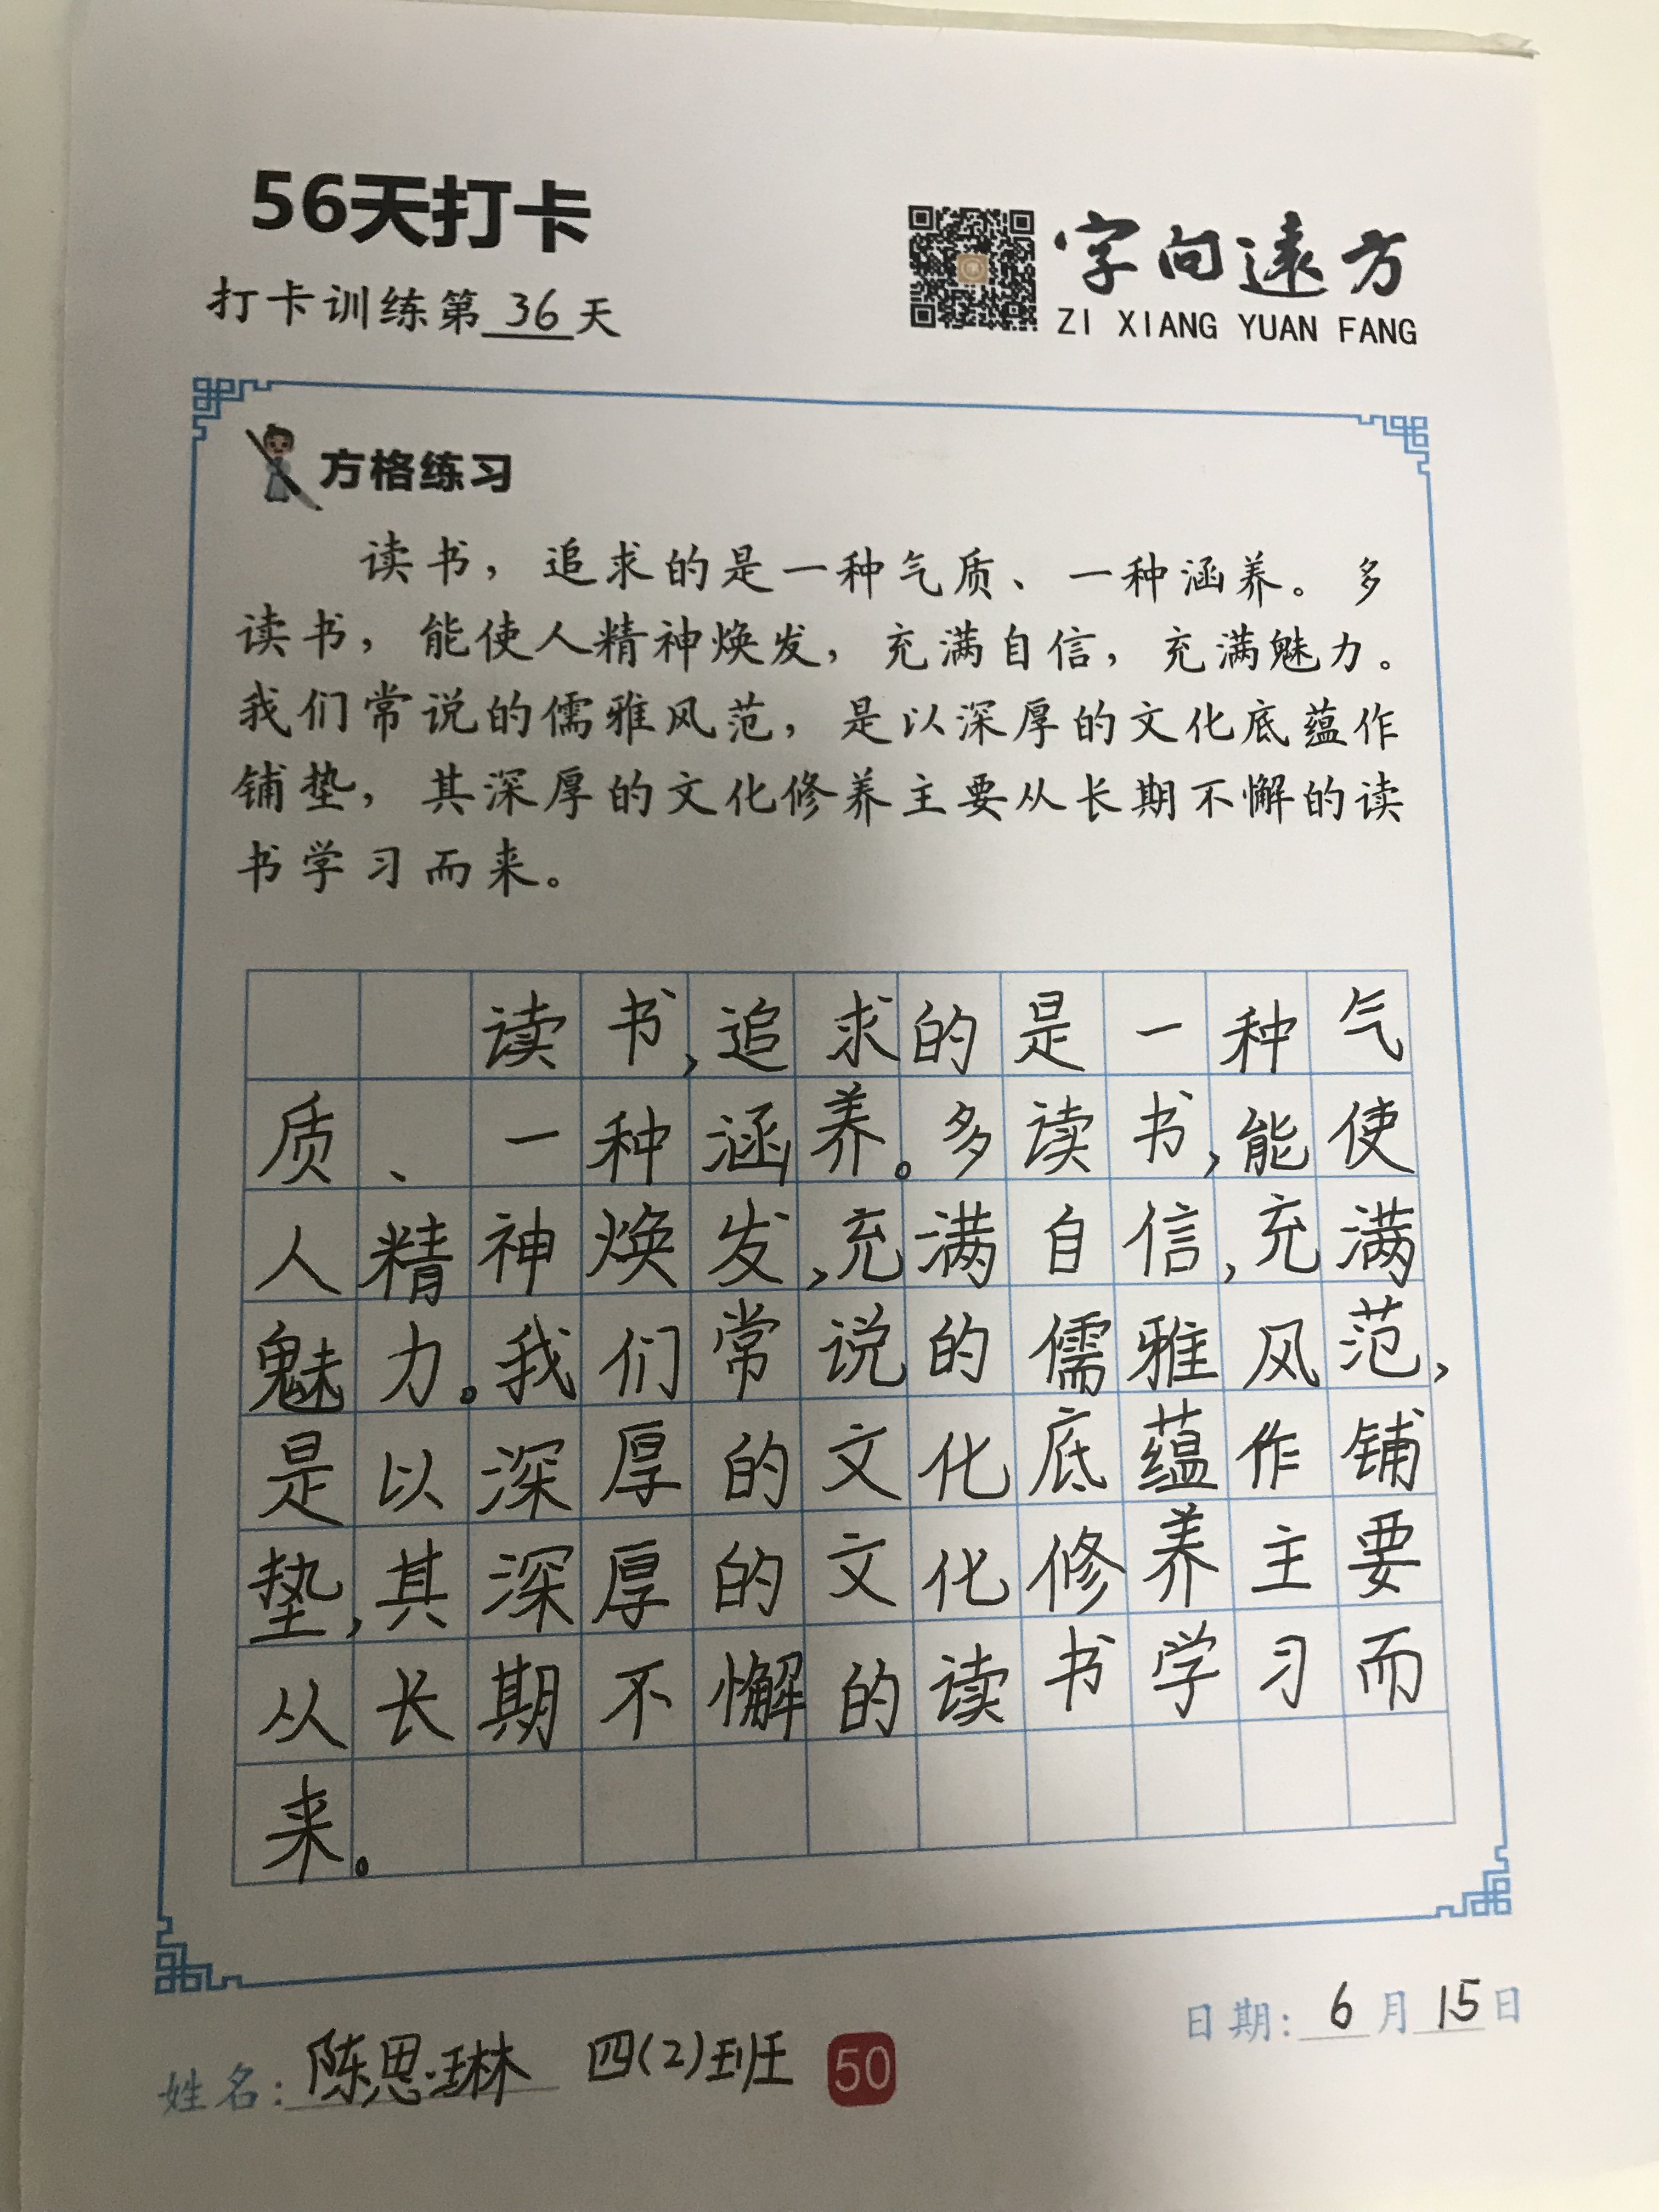 56天打卡
打卡训练第36天
字向远方
ZI XIANG YUAN FANG
方格练习
读书，追求的是一种气质、一种涵养。多
读书，能使人精神焕发，充满自信，充满魅力。
我们常说的儒雅风范，是以深厚的文化底蕴作
铺垫，其深厚的文化修养主要从长期不懈的读
书学习而来。
读书，追求的是一种气
质、一种涵养。多读书，能使
人精神焕发，充满自信，充满
魅力。我们常说的儒雅风范，
是以深厚的文化底蕴作铺
垫，其深厚的文化修养主要
从长期不懈的读书学习而
来。
日期：6月15日
姓名：陈思琳 四(2)班 50